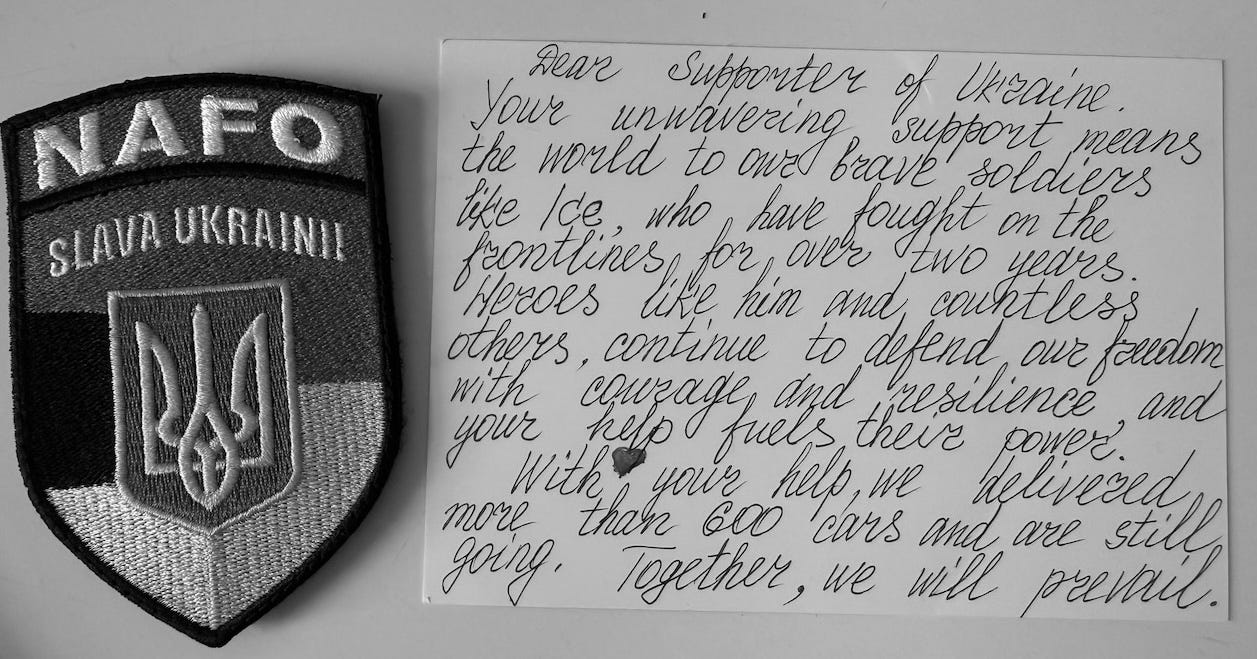 NAFO
SLAVA UKRAINI!
Dear Supporter of Ukraine.
Your unwavering support means
the world to our brave soldiers
like Ice, who have fought on the
frontlines for over two years.
Heroes like him and countless
others, continue to defend our freedom
with courage and resilience, and
your help fuels their power.
With your help, we delivered
more than 600 cars and are still
going. Together, we will prevail.